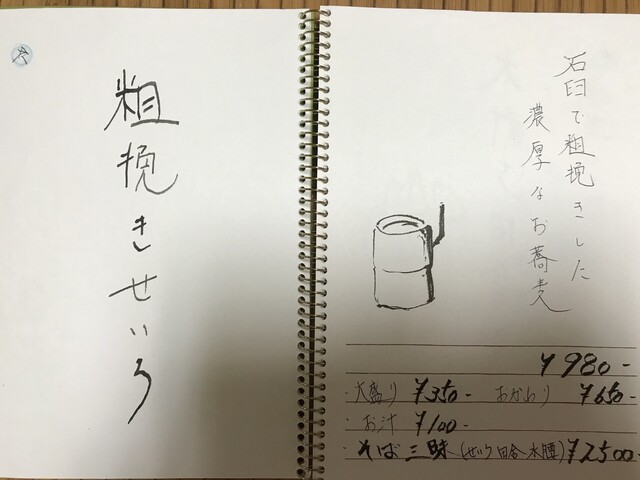 粗挽きせいろ
石臼で粗挽きした
濃厚なお蕎麦
¥980-
・大盛り ¥350- おかわり ¥650-
・お汁 ¥100-
・そば三昧 (せいろ 田舎 水腰) ¥2500-